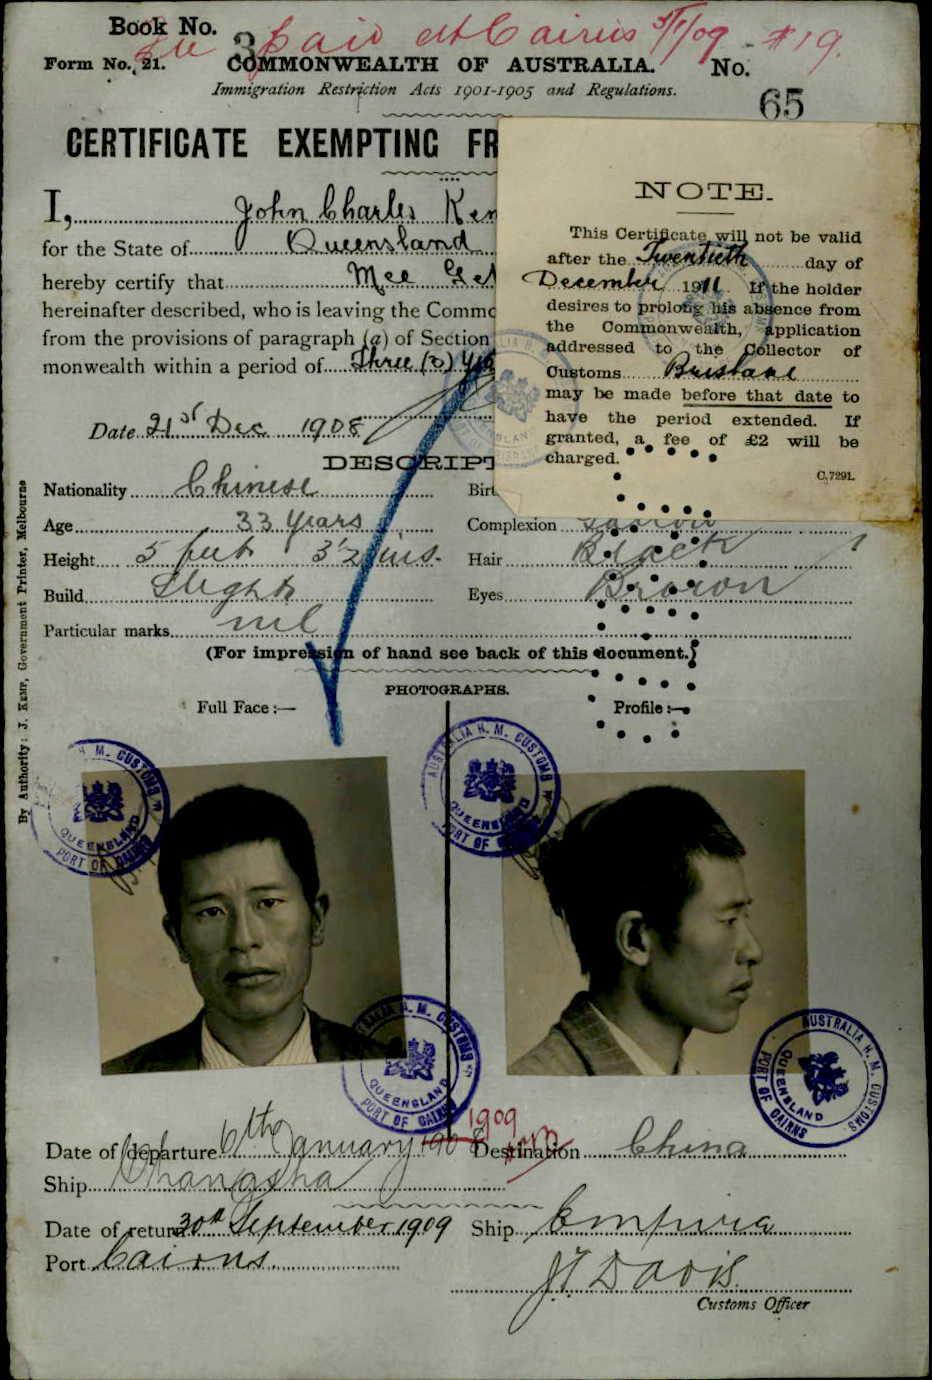 Book No. 3
£1 paid at Cairns 5/1/09 #19.
Form No. 21. COMMONWEALTH OF AUSTRALIA. No. 65
Immigration Restriction Acts 1901-1905 and Regulations.
CERTIFICATE EXEMPTING FR
I, John Charles Ken
for the State of Queensland
hereby certify that Mee Get
hereinafter described, who is leaving the Commo
from the provisions of paragraph (a) of Section
monwealth within a period of Three (3) Yea
Date 21st Dec 1908
NOTE.
This Certificate will not be valid
after the Twentieth day of
December 1911 If the holder
desires to prolong his absence from
the Commonwealth, application
addressed to the Collector of
Customs Brisbane
may be made before that date to
have the period extended. If
granted, a fee of £2 will be
charged.
C.7291.
DESCRIPT
Nationality Chinese Birt
Age 33 years Complexion
Height 5 feet 3½ ins. Hair Black
Build Slight Eyes Brown
Particular marks nil
(For impression of hand see back of this document.)
PHOTOGRAPHS.
Full Face :— Profile :—
By Authority: J. KEMP, Government Printer, Melbourne
H. M. CUSTOMS
QUEENSLAND
PORT OF CAIRNS
AUSTRALIA H. M. CUSTOMS
QUEENSLAND
PORT OF CAIRNS
AUSTRALIA H. M. CUSTOMS
QUEENSLAND
PORT OF CAIRNS
AUSTRALIA H. M. CUSTOMS
QUEENSLAND
PORT OF CAIRNS
1909
Date of departure 6th January 1908 Destination China
Ship Changsha
Date of return 30th September 1909 Ship Empire
Port Cairns.
J.T. Davis.
Customs Officer